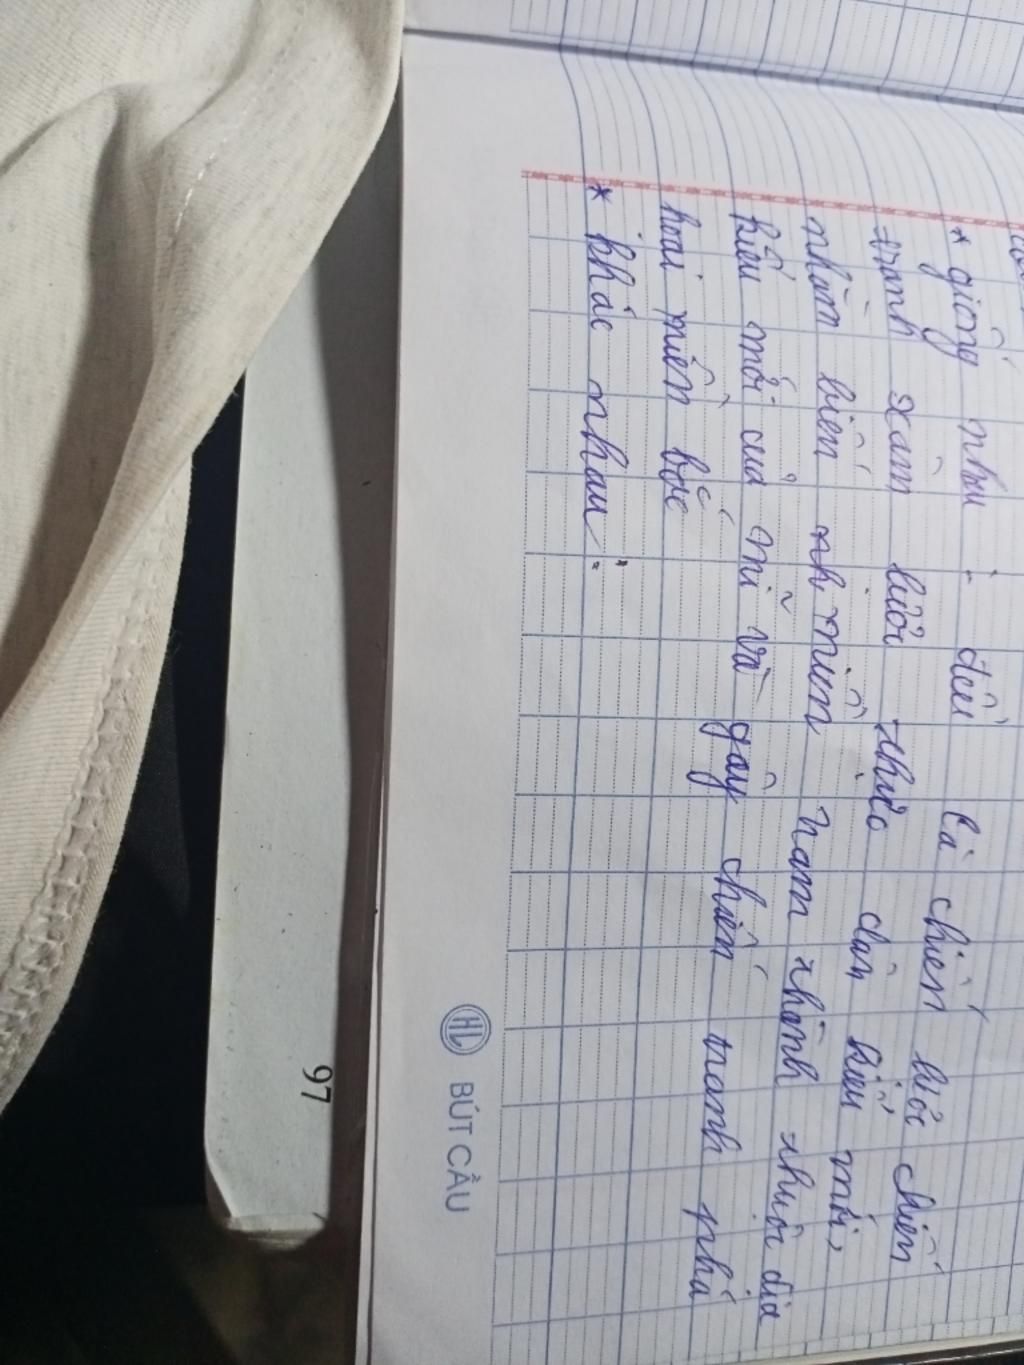 * giống nhau : đều là chiến lược chiến
tranh xâm lược thực dân kiểu mới,
nhằm biến miền nam thành thuộc địa
kiểu mới của mĩ và gây chiến tranh phá
hoại miền bắc
* khác nhau :
HL BÚT CẦU
97